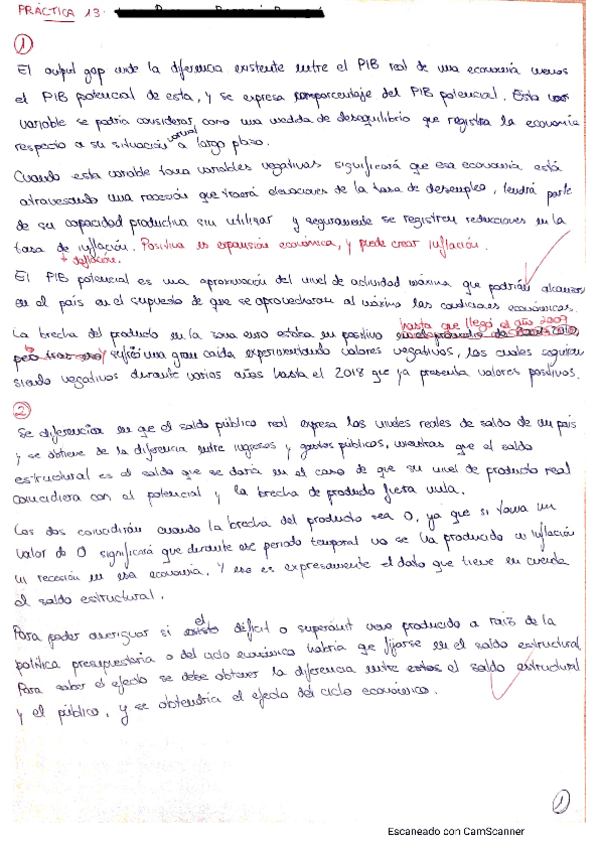 PRÁCTICA 13.
①
El output gap mide la diferencia existente entre el PIB real de una economía menos
el PIB potencial de esta, y se expresa como porcentaje del PIB potencial. Esta
variable se podría considerar como una medida de desequilibrio que registra la economía
respecto a su situación normal a largo plazo.
Cuando esta variable toma variables negativas significará que esa economía está
atravesando una recesión que traerá elevaciones de la tasa de desempleo, tendrá parte
de su capacidad productiva sin utilizar y seguramente se registren reducciones en la
tasa de inflación. Positiva es expansión económica, y puede crear inflación.
+ deflación.
El PIB potencial es una aproximación del nivel de actividad máxima que podrían alcanzar
en el país en el supuesto de que se aprovecharan al máximo las condiciones económicas.
hasta que llegó el año 2009
La brecha del producto en la zona euro estaba en positivo
y sufrió una gran caída experimentando valores negativos, los cuales siguieron
siendo negativos durante varios años hasta el 2018 que ya presenta valores positivos.
②
Se diferencian en que el saldo público real expresa los niveles reales de saldo de un país
y se obtiene de la diferencia entre ingresos y gastos públicos, mientras que el saldo
estructural es el saldo que se daría en el caso de que su nivel de producto real
coincidiera con el potencial y la brecha de producto fuera nula.
Los dos coincidirán cuando la brecha del producto sea 0, ya que si toma un
valor de 0 significará que durante ese periodo temporal no se ha producido ni inflación
ni recesión en esa economía. Y eso es expresamente el dato que tiene en cuenta
el saldo estructural.
Para poder averiguar si el déficit o superávit viene producido a raíz de la
política presupuestaria o del ciclo económico habría que fijarse en el saldo estructural.
Para saber el efecto se debe obtener la diferencia entre el saldo estructural
y el público, y se obtendría el efecto del ciclo económico.
①
Escaneado con CamScanner